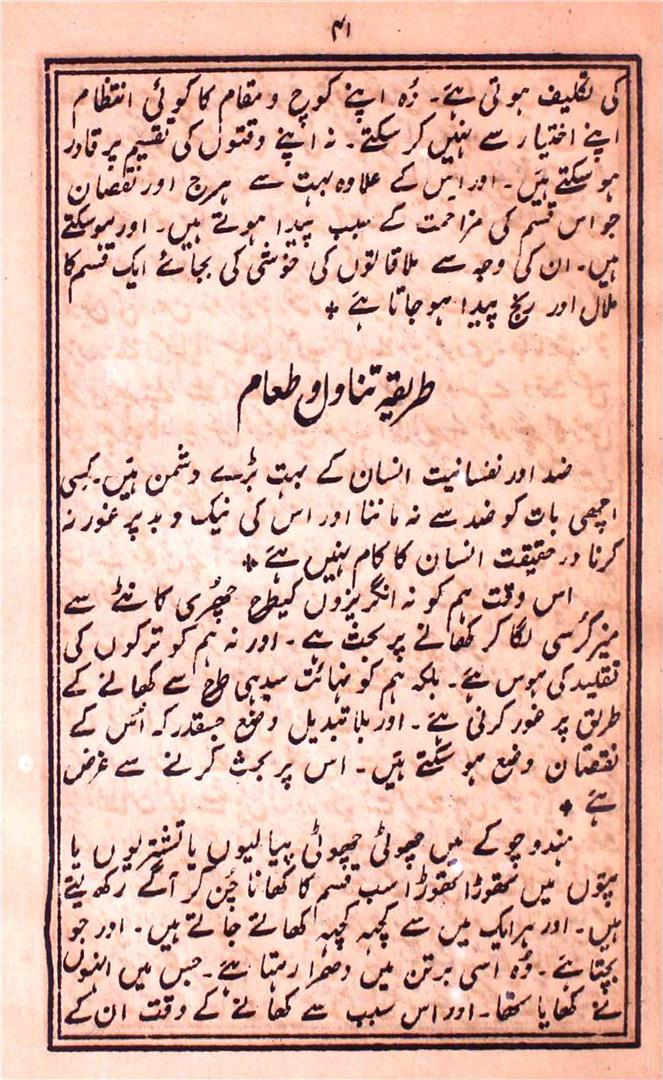 ۴۱
کی تکلیف ہوتی ہے۔ وُہ اپنے کوچ و مقام کا کوئی انتظام
اپنے اختیار سے نہیں کر سکتے۔ نہ اپنے وقتوں کی تقسیم پر قادر
ہو سکتے ہیں۔ اور اِس کے علاوہ بہت سے ہرج اور نقصان
جو اس قسم کی مزاحمت کے سبب پیدا ہوتے ہیں۔ اور ہو سکتے
ہیں۔ ان کی وجہ سے ملاقاتوں کی خوشی کی بجائے ایک قسم کا
ملال اور رنج پیدا ہو جاتا ہے *
طریقہ تناول و طعام
ضد اور نفسانیت انسان کے بہت بڑے دشمن ہیں۔ کسی
اچھی بات کو ضد سے نہ ماننا اور اس کی نیک و بد پر غور نہ
کرنا در حقیقت انسان کا کام نہیں ہے *
اس وقت ہم کو نہ انگریزوں کیطرح چھُری کانٹے سے
میز کُرسی لگا کر کھانے پر بحث ہے۔ اور نہ ہم کو ترکوں کی
تقلید کی ہوس ہے۔ بلکہ ہم کو نہائت سیدہی طرح سے کھانے کے
طریق پر غور کرنی ہے۔ اور بلا تبدیل وضع جسقدر کہ اُس کے
نقصان وضع ہو سکتے ہیں۔ اس پر بحث کرنے سے غرض
ہے *
ہندو چوکے میں چھوٹی چھوٹی پیالیوں یا تشتریوں یا
پتوں میں تھوڑا تھوڑا سب قسم کا کھانا چُن کر آگے رکھ لیتے
ہیں۔ اور ہر ایک میں سے کچہہ کچہہ کھاتے جاتے ہیں۔ اور جو
بچتا ہے۔ وُہ اسی برتن میں دھرا رہتا ہے۔ جس میں انہوں
نے کھایا تھا۔ اور اس سبب سے کھانے کے وقت ان کے